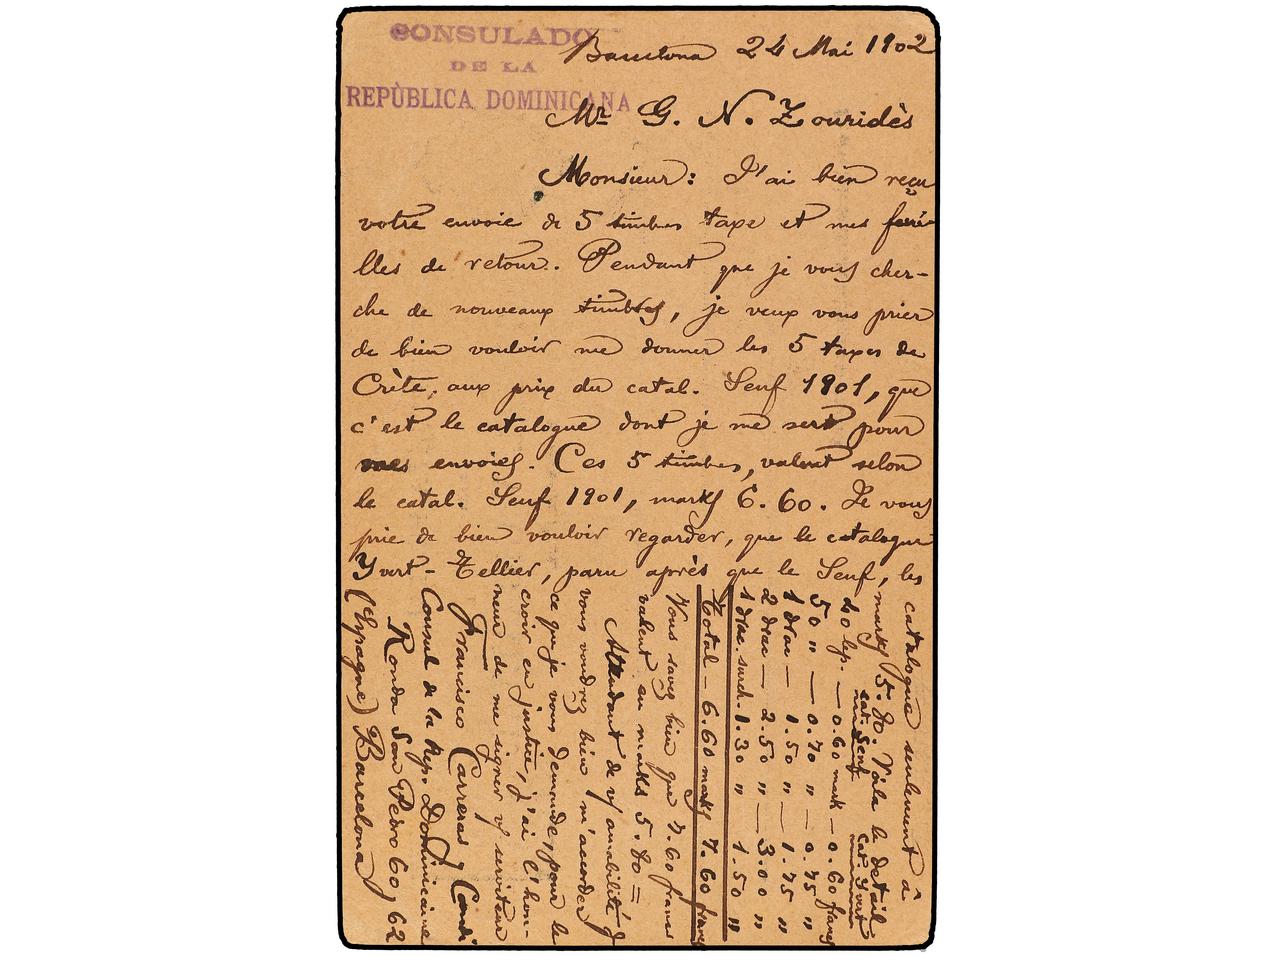 CONSULADO
DE LA
REPÙBLICA DOMINICANA
Barcelona 24 Mai 1902
Mr G. N. Zouridès
Monsieur: J'ai bien reçu
votre envoie de 5 timbres taxe et mes feui-
lles de retour. Pendant que je vous cher-
che de nouveaux timbres, je veux vous prier
de bien vouloir me donner les 5 taxes de
Crète, aux prix du catal. Senf 1901, que
c'est le catalogue dont je me sert pour
mes envoies. Ces 5 timbres, valent selon
le catal. Senf 1901, marks 6.60. Je vous
prie de bien vouloir regarder, que le catalogue
Yvert-Tellier, paru après que le Senf, les
catalogue seulement à
marks 5.80. Voila le detail
cat. Senf cat. Yvert
40 lep. — 0.60 mark — 0.60 francs
50 " — 0.70 " — 0.75 "
1 drac — 1.50 " — 1.75 "
2 drac — 2.50 " — 3.00 "
1 drac. surch. 1.30 " 1.50 "
Total — 6.60 marks 7.60 francs
Vous savez bien que 7.60 francs
valent en marks 5.80 =
Attendant de v/ amabilité q
vous voudrez bien m'accorder
ce que je vous demande, pour le
croir en justice, j'ai l'hon-
neur de me signer v/ serviteur
Francisco Carreras y Candi
Consul de la Rep. Dominicaine
Ronda San Pedro 60, 62
(Espagne) Barcelona